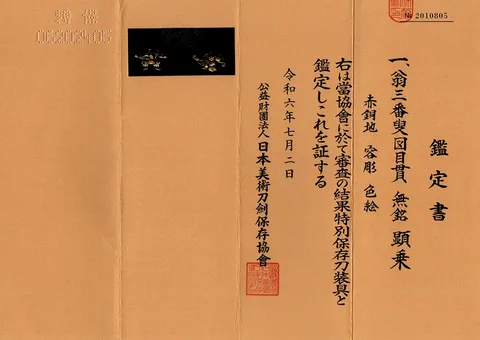 № 2010805
鑑定書
一、翁三番叟図目貫 無銘 顕乗
赤銅地 容彫 色絵
右は當協會に於て審査の結果特別保存刀装具と
鑑定しこれを証する
令和六年七月二日
公益財團法人 日本美術刀劍保存協會